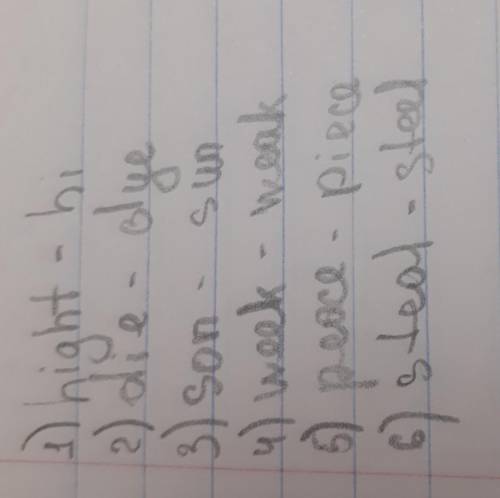 1) hight - hi
2) die - dye
3) son - sun
4) week - weak
5) peace - piece
6) steal - steel